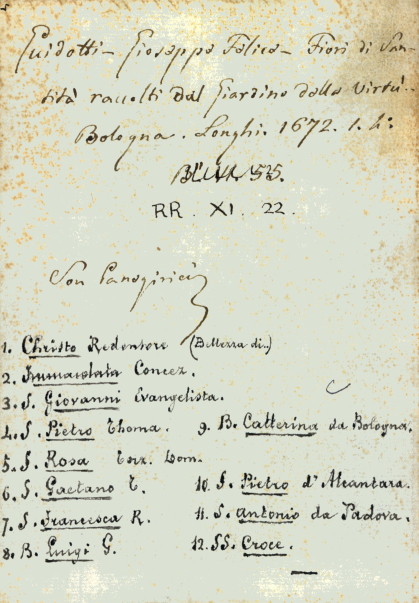 Guidotti – Gioseppe Felice – Fiori di San-
tità raccolti dal Giardino della Virtù..
Bologna. Longhi. 1672. 1. 4:
RR. XI. 22.
Son Panegirici
1. Christo Redentore (Bellezza di..)
2. Immacolata Concez.
3. S. Giovanni Evangelista.
4. S. Pietro Thoma.
5. S. Rosa Terz. Dom.
6. S. Gaetano T.
7. S. Francesca R.
8. B. Luigi G.
9. B. Catterina da Bologna.
10. S. Pietro d'Alcantara.
11. S. Antonio da Padova.
12. SS. Croce.